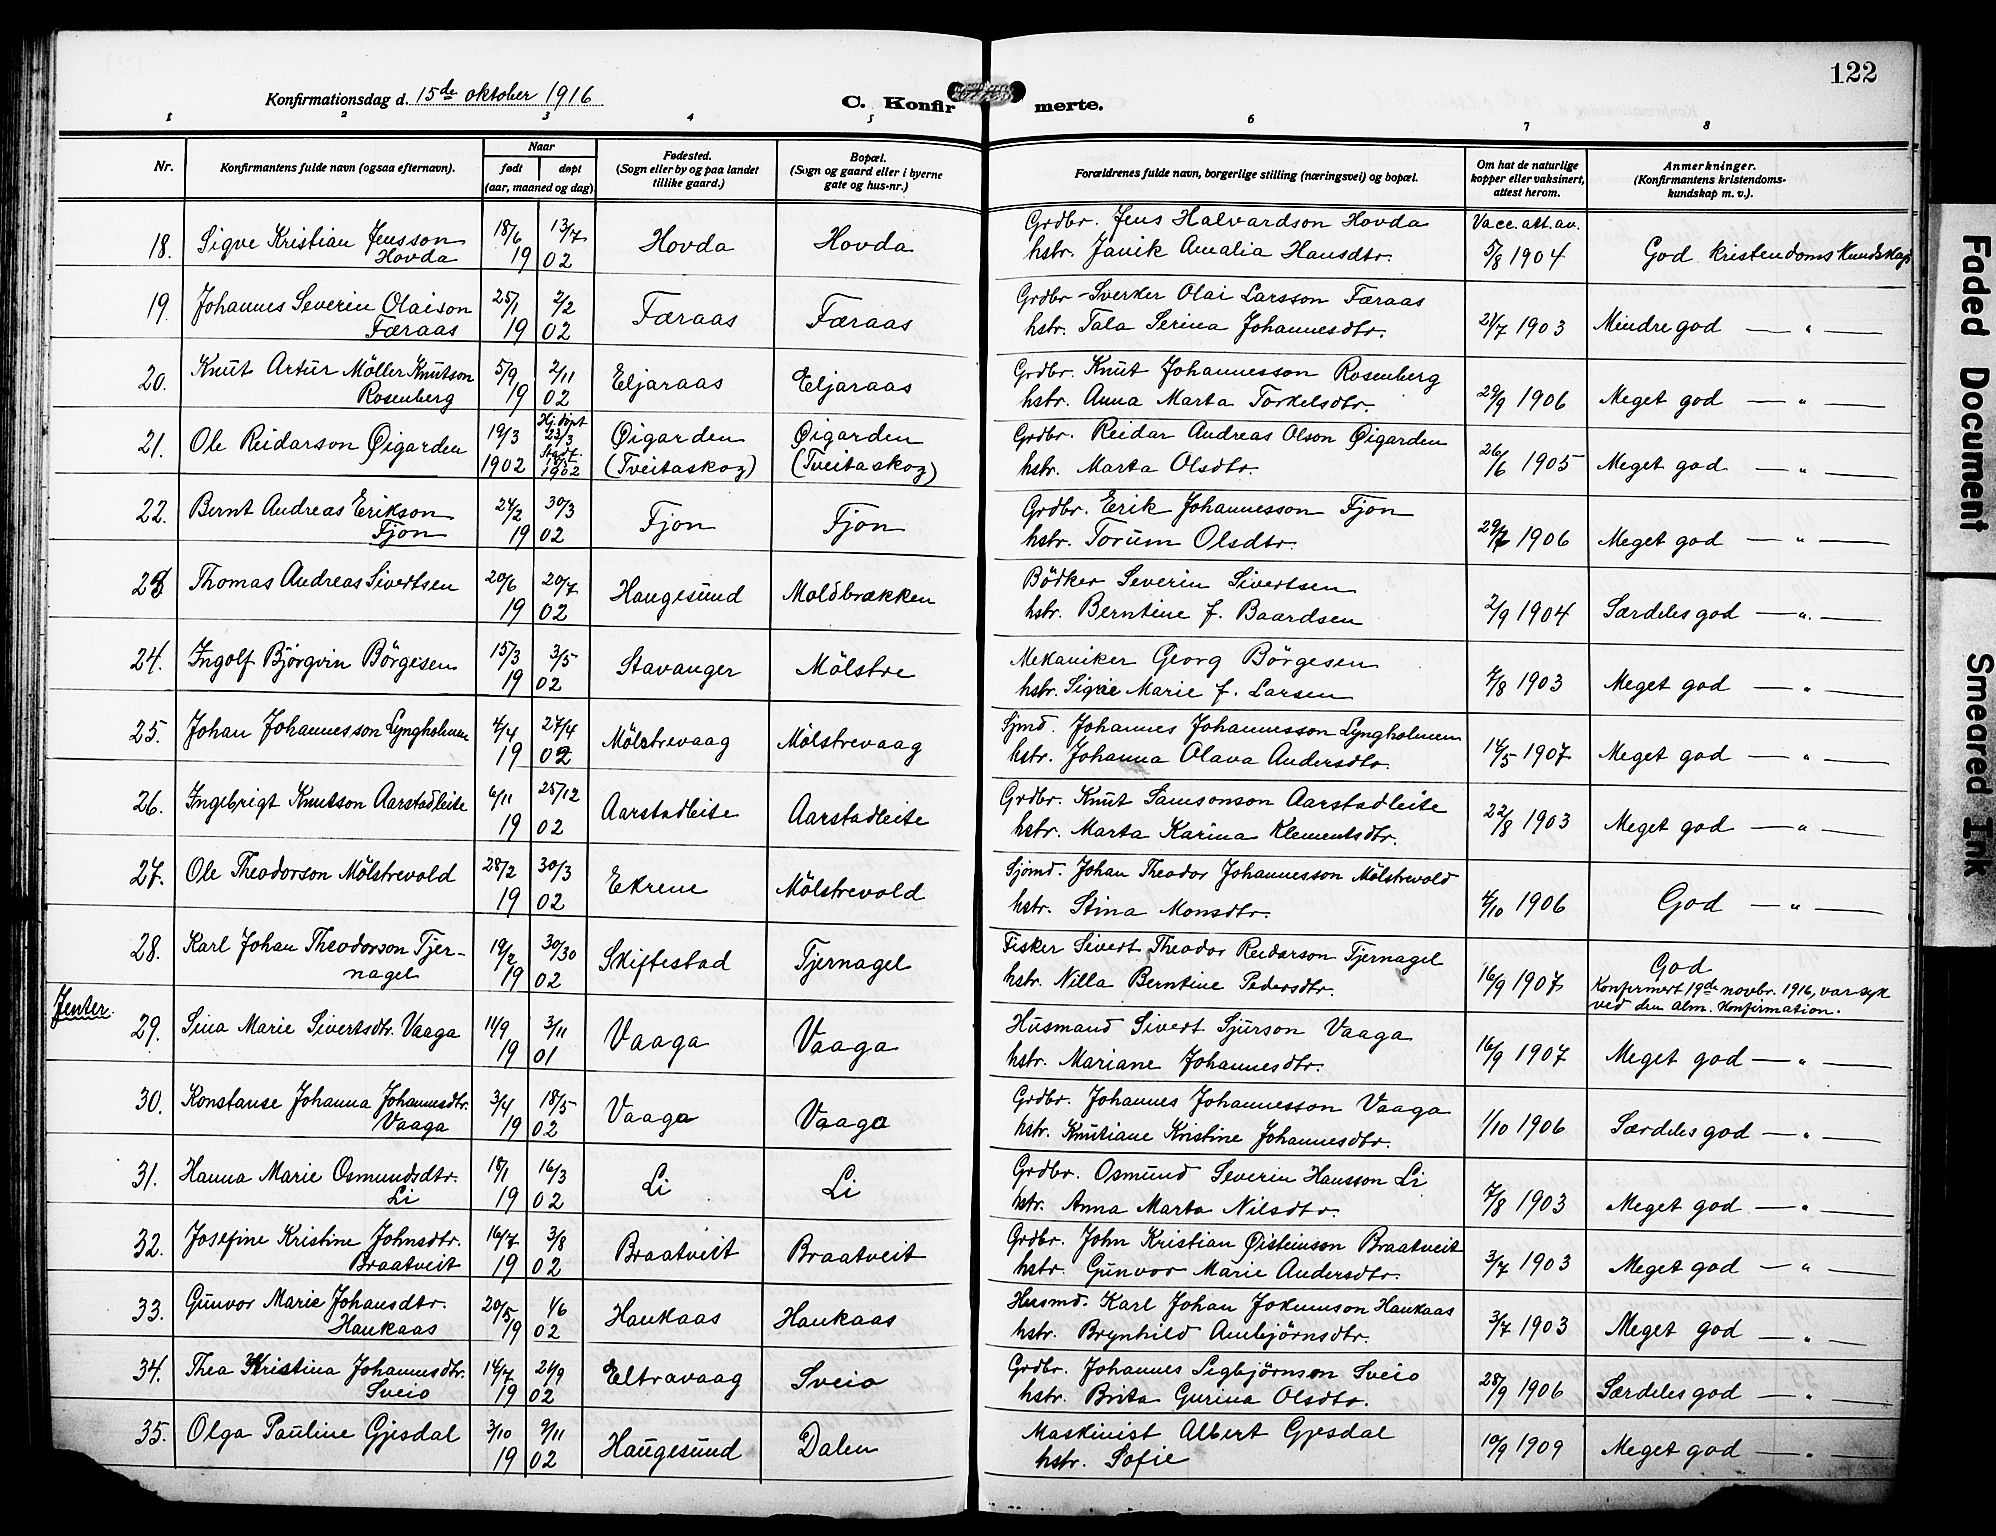 122
Konfirmationsdag d. 15de oktober 1916
C. Konfirmerte.
1 2 3 4 5 6 7 8
Nr. Konfirmantens fulde navn (ogsaa efternavn). Naar født døpt (aar, maaned og dag). Fødested. (Sogn eller by og paa landet tillike gaard.) Bopæl. (Sogn og gaard eller i byerne gate og hus-nr.) Forældrenes fulde navn, borgerlige stilling (næringsvei) og bopæl. Om hat de naturlige kopper eller vaksinert, attest herom. Anmerkninger. (Konfirmantens kristendomskundskap m. v.).
18. Sigve Kristian Jensson Hovda 18/6 13/7 1902 Hovda Hovda Grdbr. Jens Halvardson Hovda
hstr. Janik Amalia Hansdtr. Vacc. att. av. 5/8 1904 God kristendomskundskap
19. Johannes Severin Olaison Færaas 25/1 2/2 1902 Færaas Færaas Grdbr - Sverker Olai Larsson Færaas
hstr. Tala Serina Johannesdtr. 21/7 1903 Mindre god — " —
20. Knut Artur Möller Knutson Rosenberg 5/9 2/11 1902 Eljaraas Eljaraas Grdbr. Knut Johannesson Rosenberg
hstr. Anna Marta Torkelsdtr. 29/9 1906 Meget god — " —
21. Ole Reidarson Øigarden 19/3 1902 Hj. döpt 23/3 1902 Øigarden (Tveitaskog) Øigarden (Tveitaskog) Grdbr. Reidar Andreas Olson Øigarden
hstr. Marta Olsdtr. 26/6 1905 Meget god — " —
22. Bernt Andreas Erikson Fjon 24/2 30/3 1902 Fjon Fjon Grdbr. Erik Johannesson Fjon
hstr. Torum Olsdtr. 1906 Meget god — " —
23 Thomas Andreas Sivertsen 20/6 20/7 1902 Haugesund Moldbrækken Bödker Severin Sivertsen
hstr. Berntine f. Baardsen 2/9 1904 Særdeles god — " —
24. Ingolf Björgvin Börgesen 15/3 3/5 1902 Stavanger Mölstre Mekaniker Georg Börgesen
hstr. Signe Marie f. Larsen 7/8 1903 Meget god — " —
25. Johan Johannesson Lyngholmen 4/4 27/4 1902 Mölstrevaag Mölstrevaag Sjmd. Johannes Johannesson Lyngholmen
hstr. Johanna Olava Andersdtr. 14/5 1907 Meget god — " —
26. Ingebrigt Knutson Aarstadleite 6/11 25/12 1902 Aarstadleite Aarstadleite Grdbr. Knut Samsonson Aarstadleite
hstr. Marta Karina Klementsdtr. 22/8 1903 Meget god — " —
27. Ole Theodorson Mölstrevold 28/2 30/3 1902 Ekrene Mölstrevold Sjömd. Johan Theodor Johannesson Mölstrevold
hstr. Stina Monsdtr. 4/10 1906 God — " —
28. Karl Johan Theodorson Tjernagel 19/2 30/30 1902 Skiftestad Tjernagel Fisker Sivert Theodor Reidarson Tjernagel
hstr. Nilla Berntine Pedersdtr. 16/9 1907 God
Konfirmert 19de novbr. 1916, var syk
ved den alm. Konfirmation.
Jenter.
29. Sina Marie Sivertsdtr. Vaaga 14/9 3/11 1901 Vaaga Vaaga Husmand Sivert Sjurson Vaaga
hstr. Mariane Johannesdtr. 16/9 1907 Meget god — " —
30. Konstanse Johanna Johannesdtr. Vaaga 3/4 18/5 1902 Vaaga Vaaga Grdbr. Johannes Johannesson Vaaga
hstr. Knutiane Kristine Johannesdtr. 1/10 1906 Særdeles god — " —
31. Hanna Marie Osmundsdtr. Li 18/1 16/3 1902 Li Li Grdbr. Osmund Severin Hansson Li
hstr. Anna Marta Nilsdtr. 7/8 1903 Meget god — " —
32. Josefine Kristine Johnsdtr. Braatveit 16/7 3/8 1902 Braatveit Braatveit Grdbr. John Kristian Øisteinson Braatveit
hstr. Gunvor Marie Andersdtr. 3/7 1903 Meget god — " —
33. Gunvor Marie Johansdtr. Haukaas 20/5 1/6 1902 Haukaas Haukaas Husmd. Karl Johan Jokumson Haukaas
hstr. Brynhild Ambjörnsdtr. 3/7 1903 Meget god — " —
34. Thea Kristina Johannesdtr. Sveio 14/7 21/9 1902 Eltravaag Sveio Grdbr. Johannes Sigbjörnson Sveio
hstr. Brita Gurina Olsdtr. 28/9 1906 Særdeles god — " —
35. Olga Pauline Gjesdal 3/10 9/11 1902 Haugesund Dalen Maskinist Albert Gjesdal
hstr. Sofie 10/9 1909 Meget god — " —
Faded Document
Smeared Ink